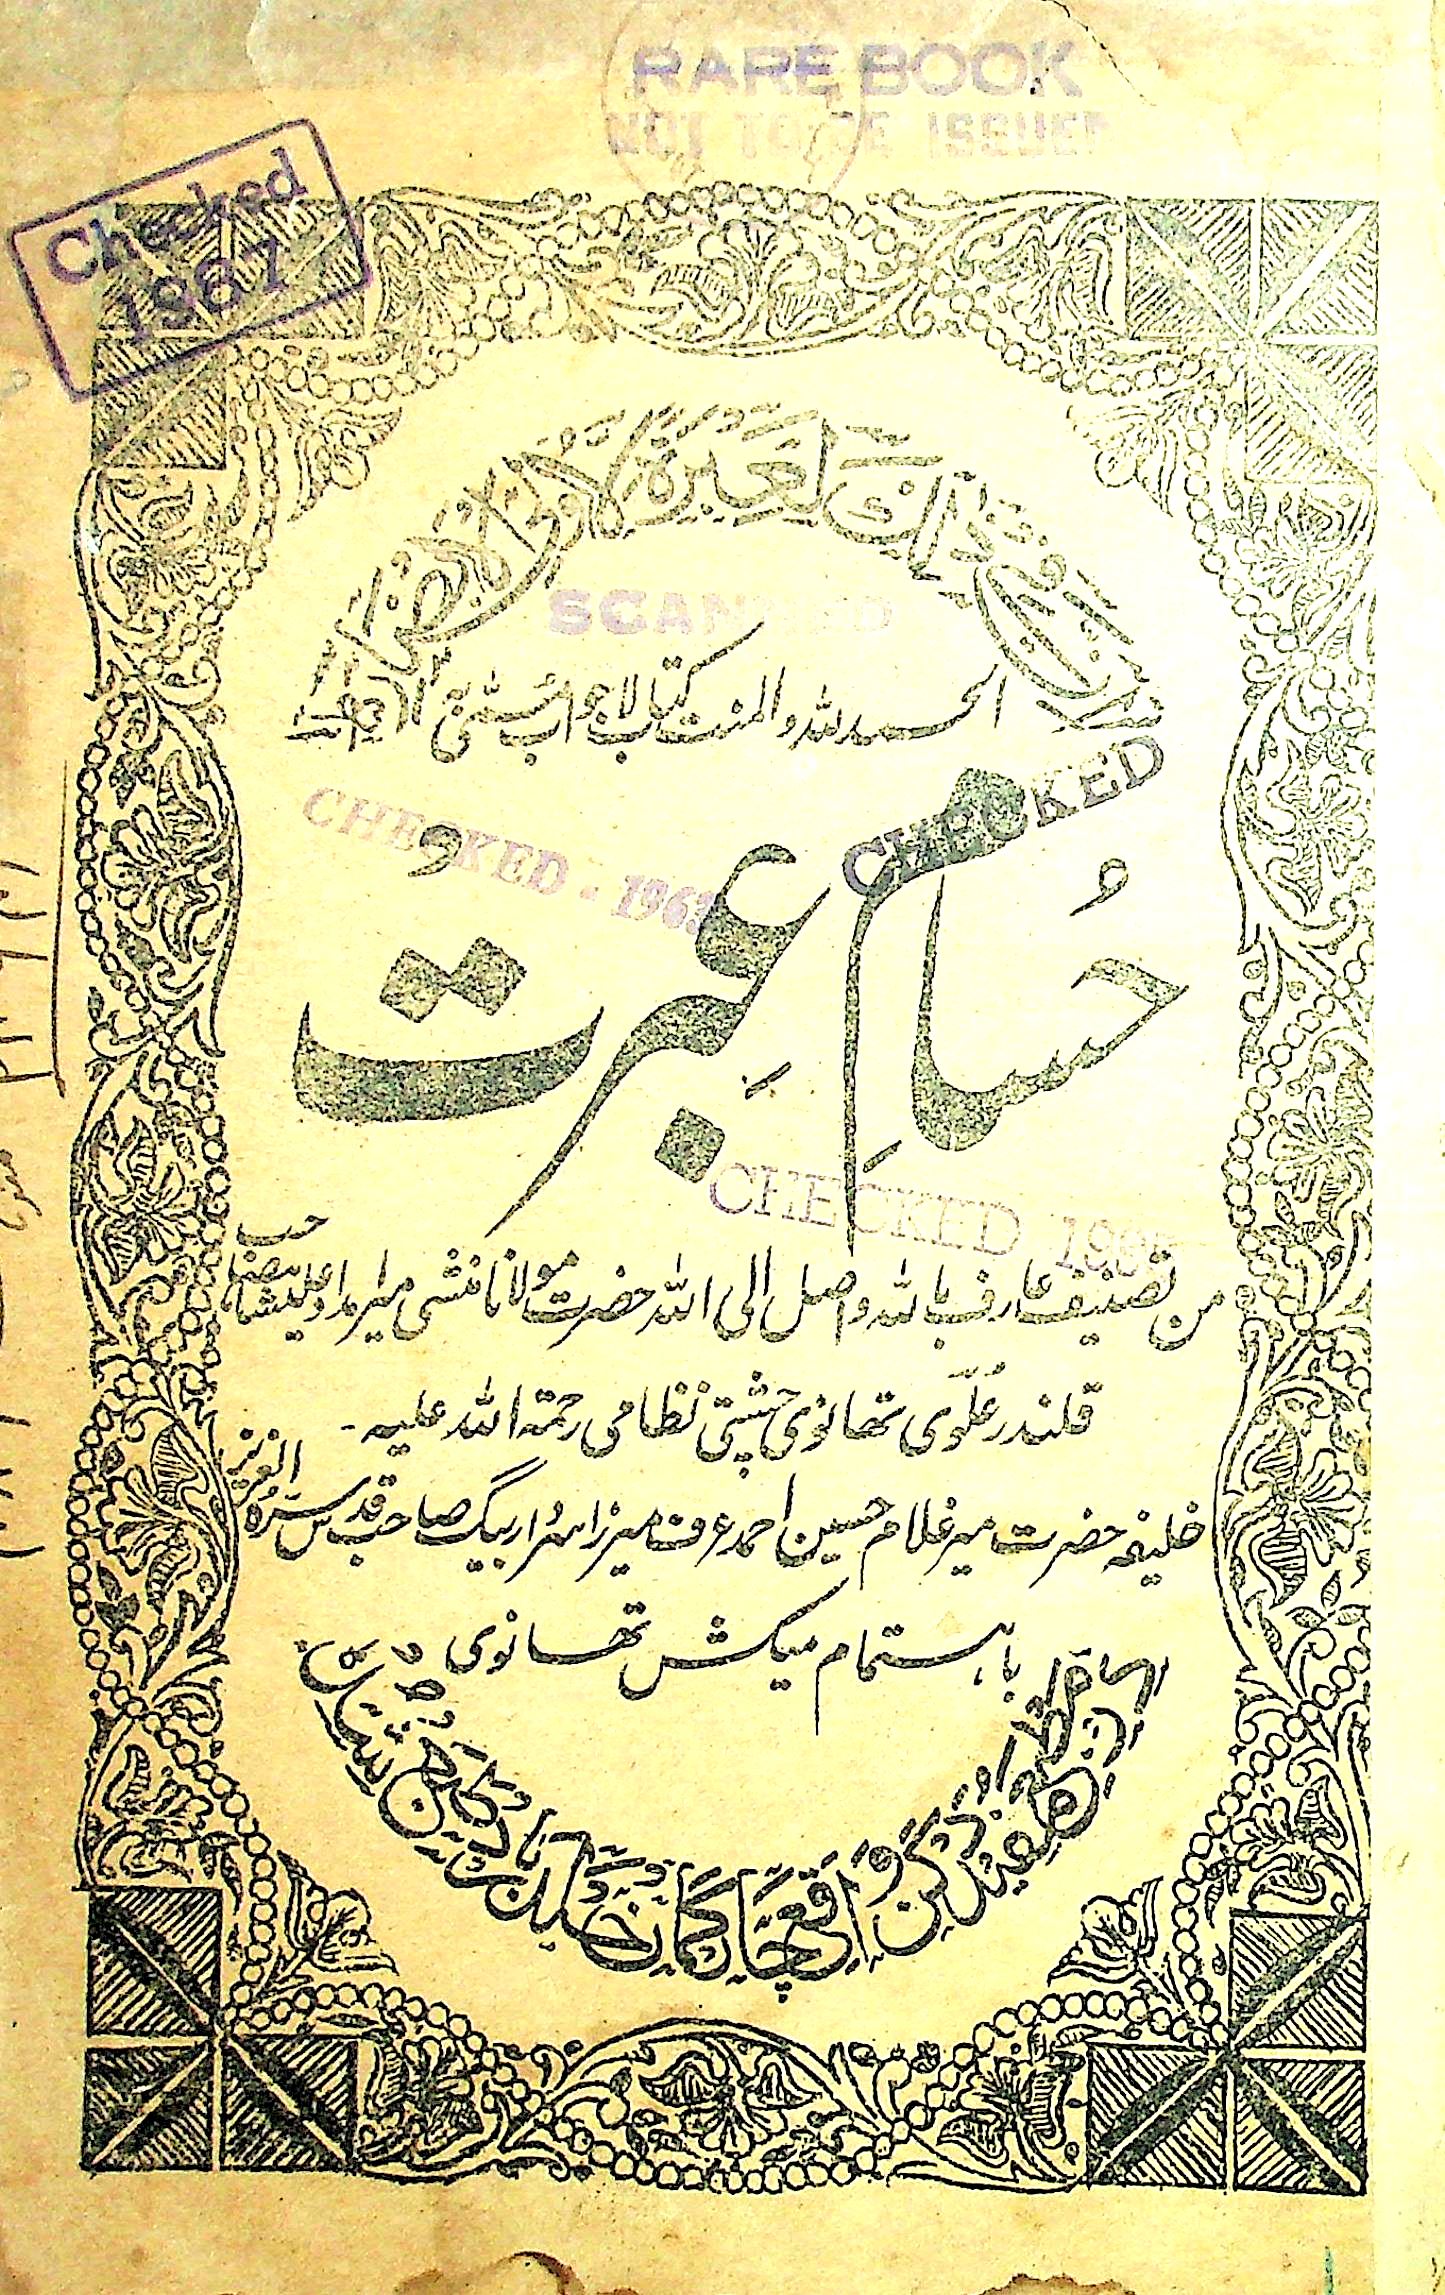 RARE BOOK
NOT TO BE ISSUED
Checked
1967
ان فی ذالک لعبرة لاولی الابصار
SCANNED
الحمد للہ والمنت کتاب لاجواب
CHECKED
CHECKED - 1963
حُسامِ عِبرت
CHECKED
من تصنیف عارف باللہ واصل الی اللہ حضرت مولانا منشی میر امداد علیشاہ صاحب
قلندر عُلَوی تھانوی چشتی نظامی رحمۃ اللہ علیہ ۔
خلیفہ حضرت میر غلام حسین احمد عرف میرزا سردار بیگ صاحب قدس سرہ العزیز
باہتمام میکش تھانوی
دکن واقع چارکمان حیدرآباد دکن